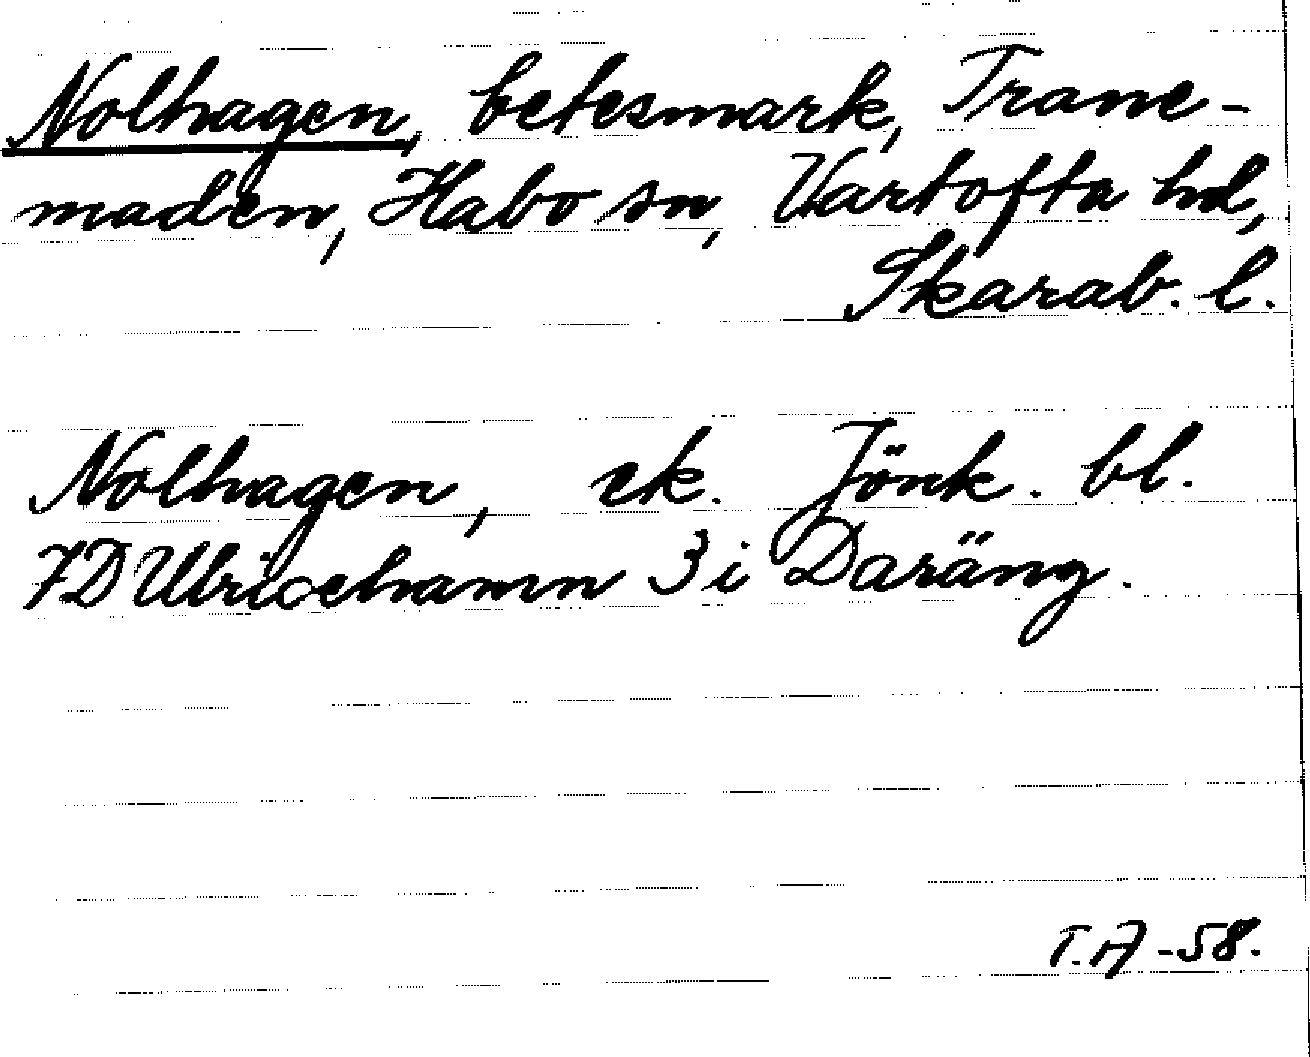 Nolhagen, betesmark, Trane-
maden, Habo sn, Vartofta hd,
Skarab. l.
Nolhagen, ek. Jönk. bl.
7D Ulricehamn 3 i Daräng.
T.A -58.